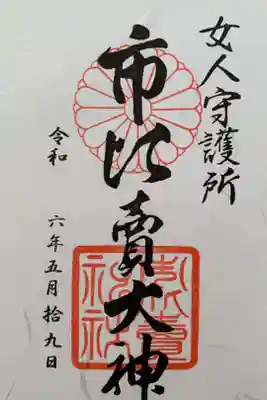 女人守護所
市比賣大神
令和 六年五月拾九日
市比賣神社